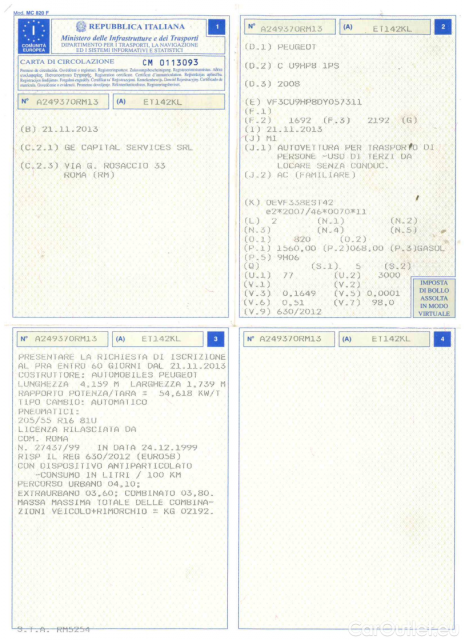 Mod. MC 820 F
I
COMUNITÀ
EUROPEA
REPUBBLICA ITALIANA
1
Ministero delle Infrastrutture e dei Trasporti
DIPARTIMENTO PER I TRASPORTI, LA NAVIGAZIONE
ED I SISTEMI INFORMATIVI E STATISTICI
CARTA DI CIRCOLAZIONE CM 0113093
N° A249370RM13 (A) ET142KL
(B) 21.11.2013
(C.2.1) GE CAPITAL SERVICES SRL
(C.2.3) VIA G. ROSACCIO 33
ROMA (RM)
N° A249370RM13 (A) ET142KL 2
(D.1) PEUGEOT
(D.2) C U9HP8 1PS
(D.3) 2008
(E) VF3CU9HP8DY057311
(F.1)
(F.2) 1692 (F.3) 2192 (G)
(I) 21.11.2013
(J) M1
(J.1) AUTOVETTURA PER TRASPORTO DI
PERSONE -USO DI TERZI DA
LOCARE SENZA CONDUC.
(J.2) AC (FAMILIARE)
(K) OEVF338EST42
e2*2007/46*0070*11
(L) 2 (N.1) (N.2)
(N.3) (N.4) (N.5)
(O.1) 820 (O.2)
(P.1) 1560,00 (P.2)068,00 (P.3)GASOL
(P.5) 9H06
(Q) (S.1) 5 (S.2)
(U.1) 77 (U.2) 3000
(V.1) (V.2)
(V.3) 0,1649 (V.5) 0,0001
(V.6) 0,51 (V.7) 98,0
(V.9) 630/2012
IMPOSTA
DI BOLLO
ASSOLTA
IN MODO
VIRTUALE
N° A249370RM13 (A) ET142KL 3
PRESENTARE LA RICHIESTA DI ISCRIZIONE
AL PRA ENTRO 60 GIORNI DAL 21.11.2013
COSTRUTTORE: AUTOMOBILES PEUGEOT
LUNGHEZZA 4,159 M LARGHEZZA 1,739 M
RAPPORTO POTENZA/TARA = 54,618 KW/T
TIPO CAMBIO: AUTOMATICO
PNEUMATICI:
205/55 R16 81U
LICENZA RILASCIATA DA
COM. ROMA
N. 27437/99 IN DATA 24.12.1999
RISP IL REG 630/2012 (EURO5B)
CON DISPOSITIVO ANTIPARTICOLATO
-CONSUMO IN LITRI / 100 KM
PERCORSO URBANO 04,10;
EXTRAURBANO 03,60; COMBINATO 03,80.
MASSA MASSIMA TOTALE DELLE COMBINA-
ZIONI VEICOLO+RIMORCHIO = KG 02192.
S.T.A. RM5254
N° A249370RM13 (A) ET142KL 4
CarOutlet.eu